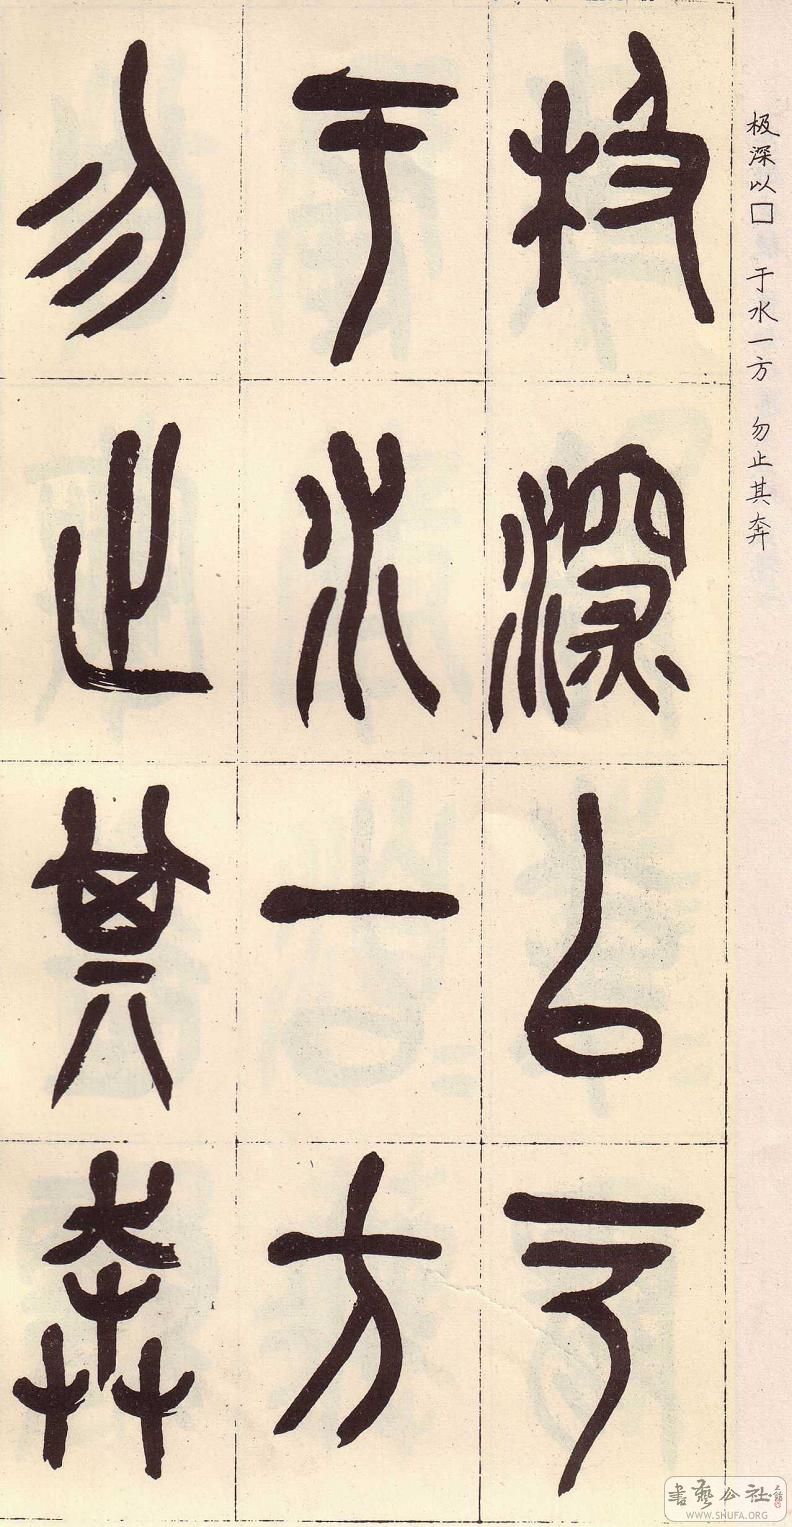 极深以□ 于水一方 勿止其奔
极深以
于水一方
勿止其奔
書藝公社
WWW.SHUFA.ORG